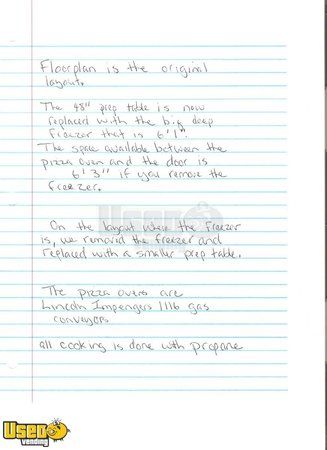 Floorplan is the original
layout.
The 48" prep table is now
replaced with the big deep
freezer that is 6'1".
The space available between the
pizza oven and the door is
6'3" if you remove the
freezer.
On the layout where the freezer
is, we removed the freezer and
replaced with a smaller prep table.
The pizza ovens are
Lincoln Impengers 1116 gas
conveyors
all cooking is done with propane
USED
vending